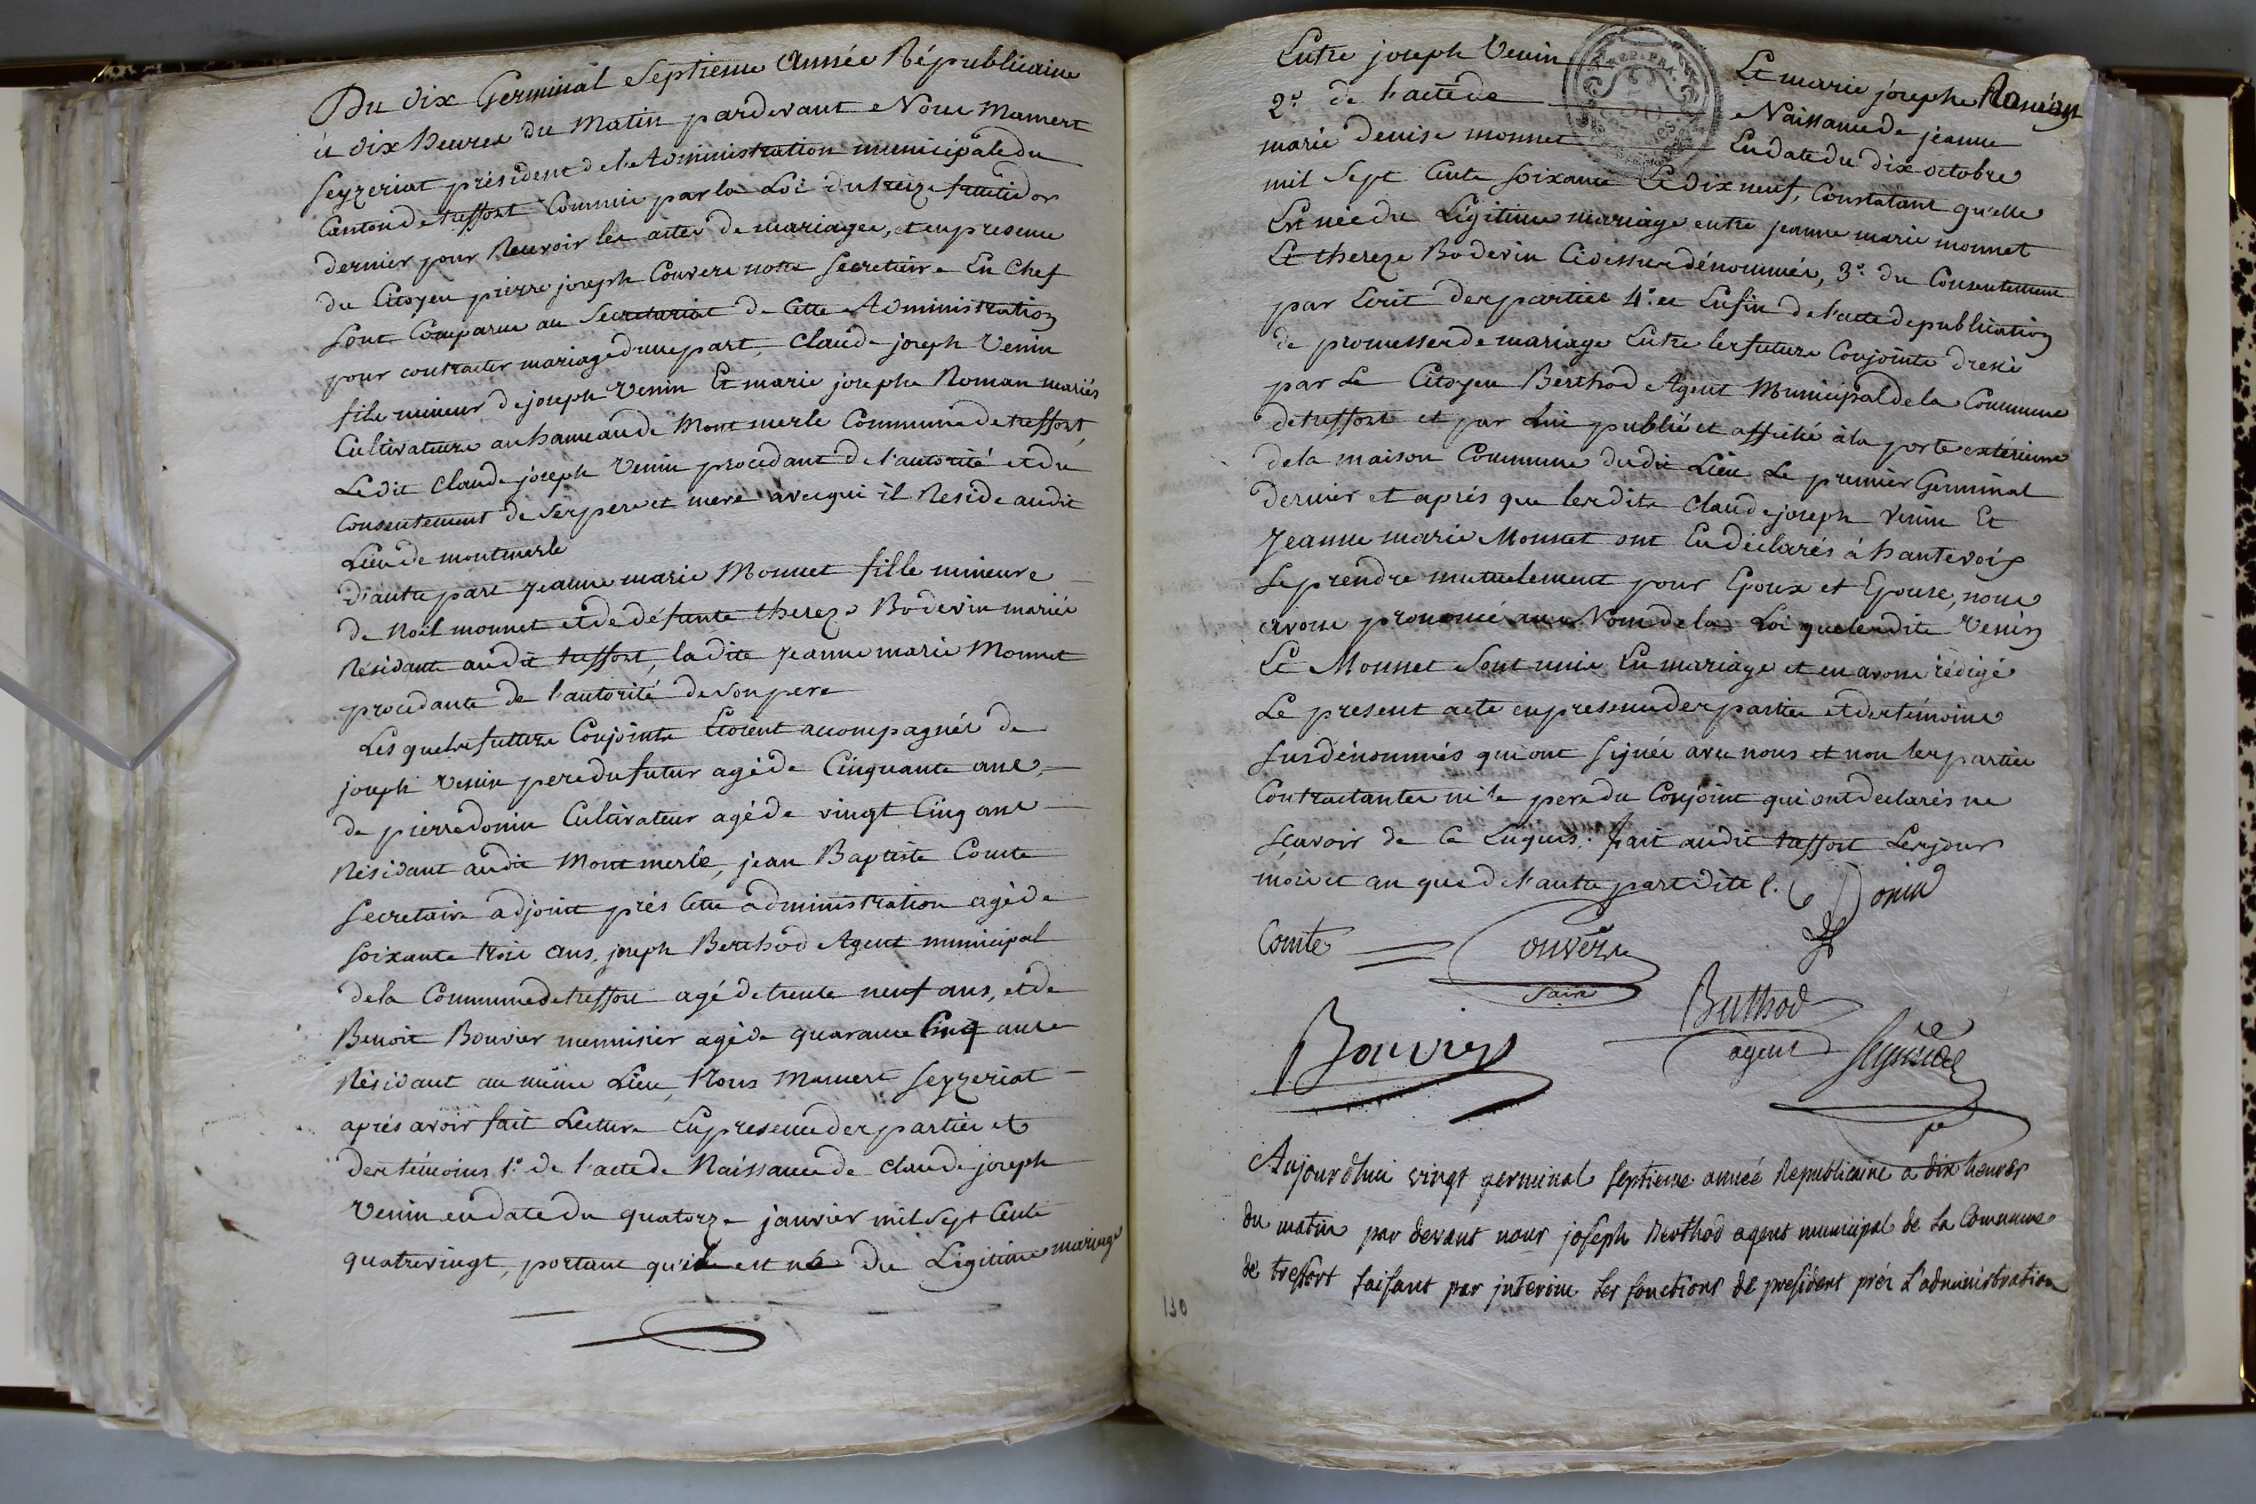 Du dix Germinal Septieme Année Républicaine
à dix heures du Matin pardevant Nous Mamert
Seyzeriat président de l'Administration municipale du
Canton de treffort Commis par la Loi du treize fructidor
dernier pour Recevoir les actes de mariages, et en presence
du Citoyen pierre joseph Convers notre Secretaire En Chef
sont Comparus au Secretariat de Cette Administration
pour contracter mariage d'une part, Claude joseph Venin
fils mineur de joseph Venin Et marie josephe Roman mariés
Cultivateurs au hameau de Mont merle Commune de treffort,
Ledit Claude joseph Venin procedant de l'autorité et du
Consentement de ses pere et mere avec qui il Reside au dit
Lieu de montmerle
d'autre part jeanne marie Monnet fille mineure
de Noël monnet et de défunte thereze Bodevin mariés
Résidante audit treffort, la dite jeanne marie Monnet
procedante de l'autorité de son pere
Les quels futurs Conjoints Etoient acompagnés de
joseph Venin pere du futur agé de Cinquante ans,
de pierre donin Cultivateur agé de vingt Cinq ans
Résidant audit Mont merle, jean Baptiste Comte
Secretaire adjoint près Cette administration agé de
soixante trois ans, joseph Berthod Agent municipal
de la Commune de treffort agé de trente neuf ans, et de
Benoit Bouvier menuisier agé de quarante Cinq ans
Résidant au même Lieu, Nous Mamert Seyzeriat
après avoir fait Lecture En presence des parties et
des témoins 1.° de l'acte de Naissance de Claude joseph
Venin en date du quatorze janvier mil sept Cents
quatrevingt, portant qu'il est né du Légitime mariage
Entre joseph Venin Et marie josephe Roman
2.° de l'acte de Naissance de jeanne
marie denise monnet En date du dix octobre
mil Sept Cents soixante Et dix neuf, Constatant qu'elle
Est née du Légitime mariage entre jeanne marie monnet
Et thereze Bodevin Cidessus dénommés, 3.° du Consentement
par Ecrit des parties 4.° et Enfin de l'acte de publication
de promesses de mariage Entre les futurs Conjoints dressé
par Le Citoyen Berthod Agent Municipal de la Commune
de treffort et par Lui publié et affiché à la porte extérieure
de la maison Commune du dit Lieu Le premier Germinal
dernier et après que lesdits Claude joseph Venin Et
Jeanne marie Monnet ont Eu déclarés à haute voix
se prendre mutuelement pour Epoux et Epouse, nous
avons prononcé au Nom de la Loi que lesdits Venin
Et Monnet Sont unis En mariage et en avons rédigé
Le present acte en presence des parties et des témoins
susdénommés qui ont signés avec nous et non les parties
Contractantes ni le pere du Conjoint qui ont declarés ne
sçavoir de Ce Enquis. fait audit treffort Les jour
mois et an que de l'autre part dits.
Donin
Comte
Convers
Bouvier
Berthod
agent
Aujourdhui vingt germinal septieme année Republicaine a dix heures
du matin par devant nous joseph Berthod agent municipal de la Commune
de treffort faisant par interim les fonctions de president près l'administration
130